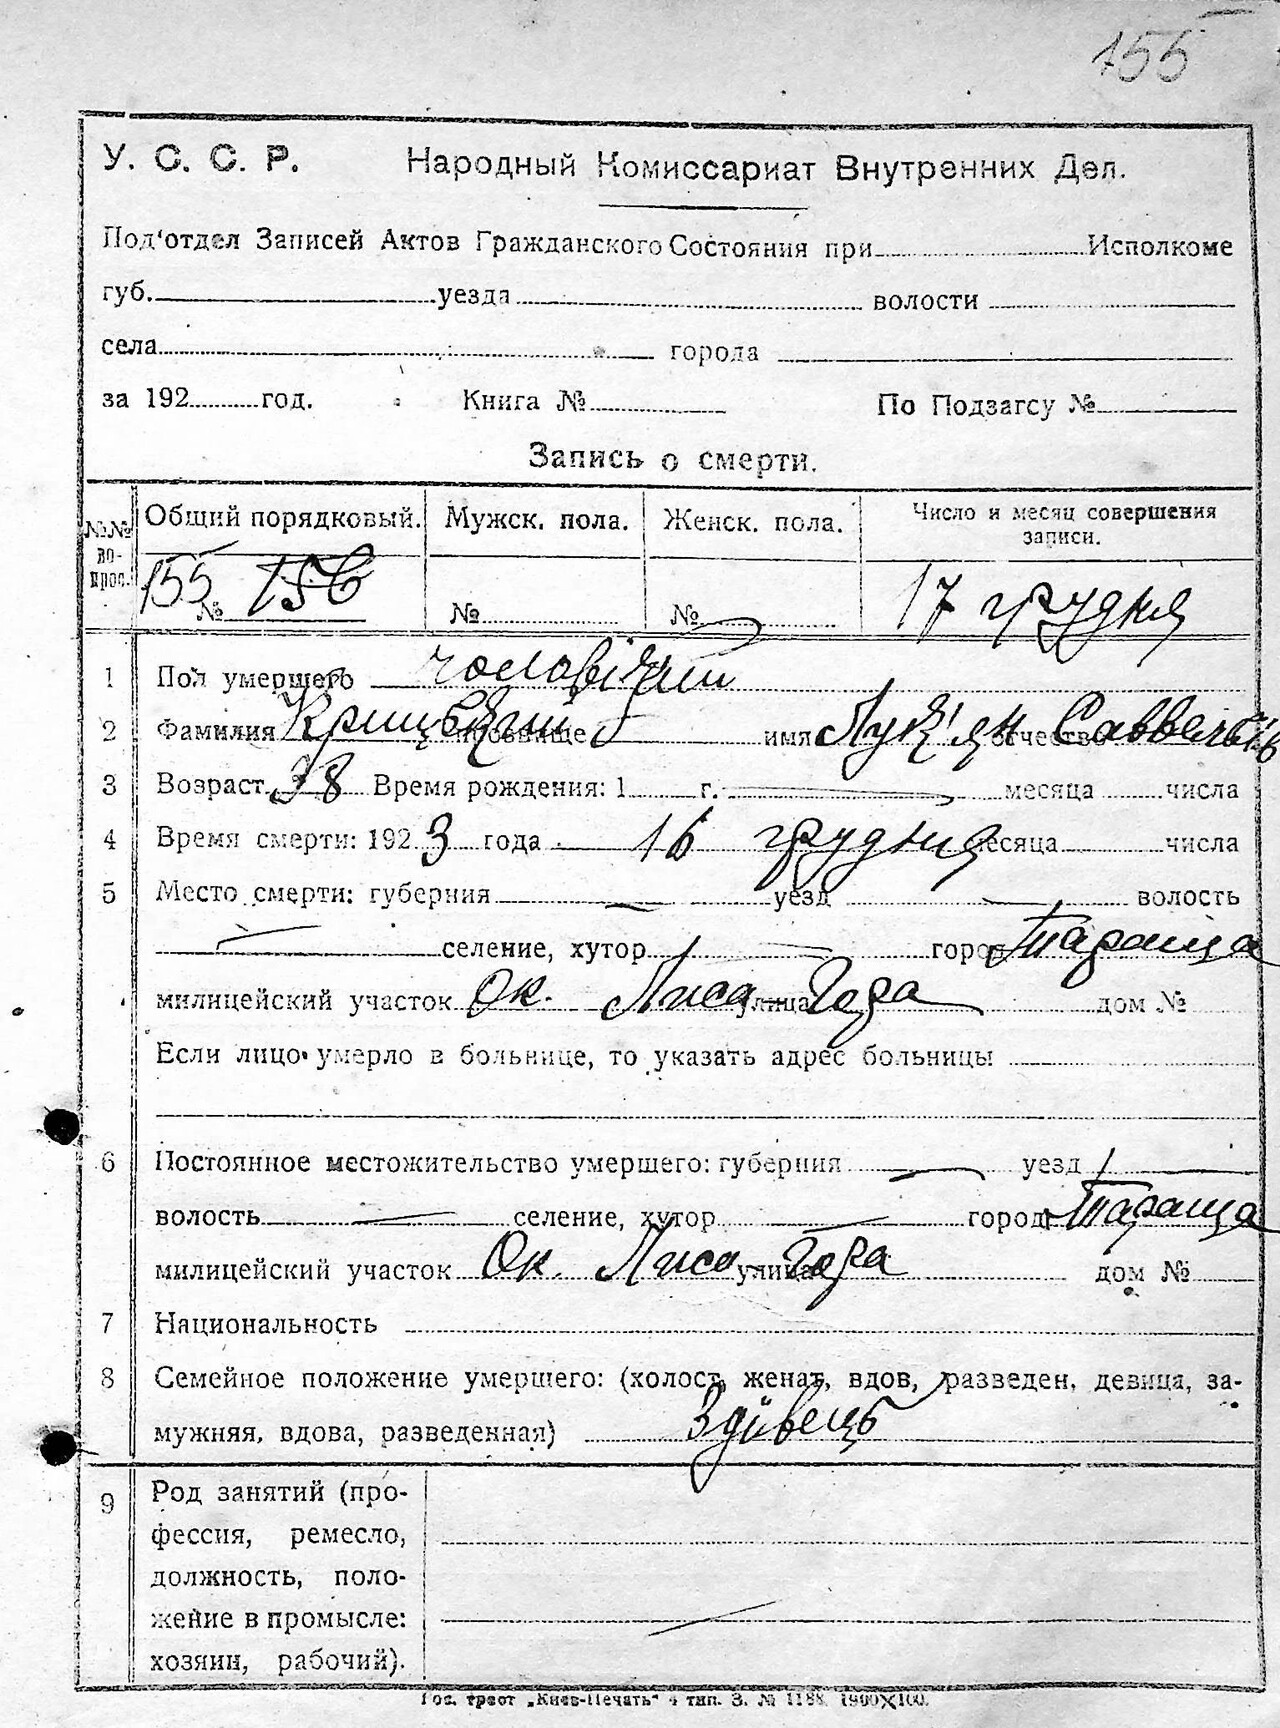 155
У. С. С. Р. Народный Комиссариат Внутренних Дел.
Под'отдел Записей Актов Гражданского Состояния при Исполкоме
губ. уезда волости
села города
за 192 год. Книга № По Подзагсу №
Запись о смерти.
№№ вопрос. Общий порядковый. Мужск. пола. Женск. пола. Число и месяц совершения записи.
155 № 156 № № 17 грудня
1 Пол умершего чоловічий
2 Фамилия прозвище имя Лук'ян отчество
3 Возраст 38 Время рождения: 1 г. месяца числа
4 Время смерти: 1923 года 16 грудня месяца числа
5 Место смерти: губерния уезд волость
селение, хутор город Тараща
милицейский участок Ок. Лиса улица Гора дом №
Если лицо умерло в больнице, то указать адрес больницы
6 Постоянное местожительство умершего: губерния уезд
волость селение, хутор город Тараща
милицейский участок Ок. Лиса улица Гора дом №
7 Национальность
8 Семейное положение умершего: (холост, женат, вдов, разведен, девица, за-
мужняя, вдова, разведенная) Здівець
9 Род занятий (про-
фессия, ремесло,
должность, поло-
жение в промысле:
хозяин, рабочий).
Гос. трест „Киев-Печать“ 4 тип. З. № 1188. 1900×100.